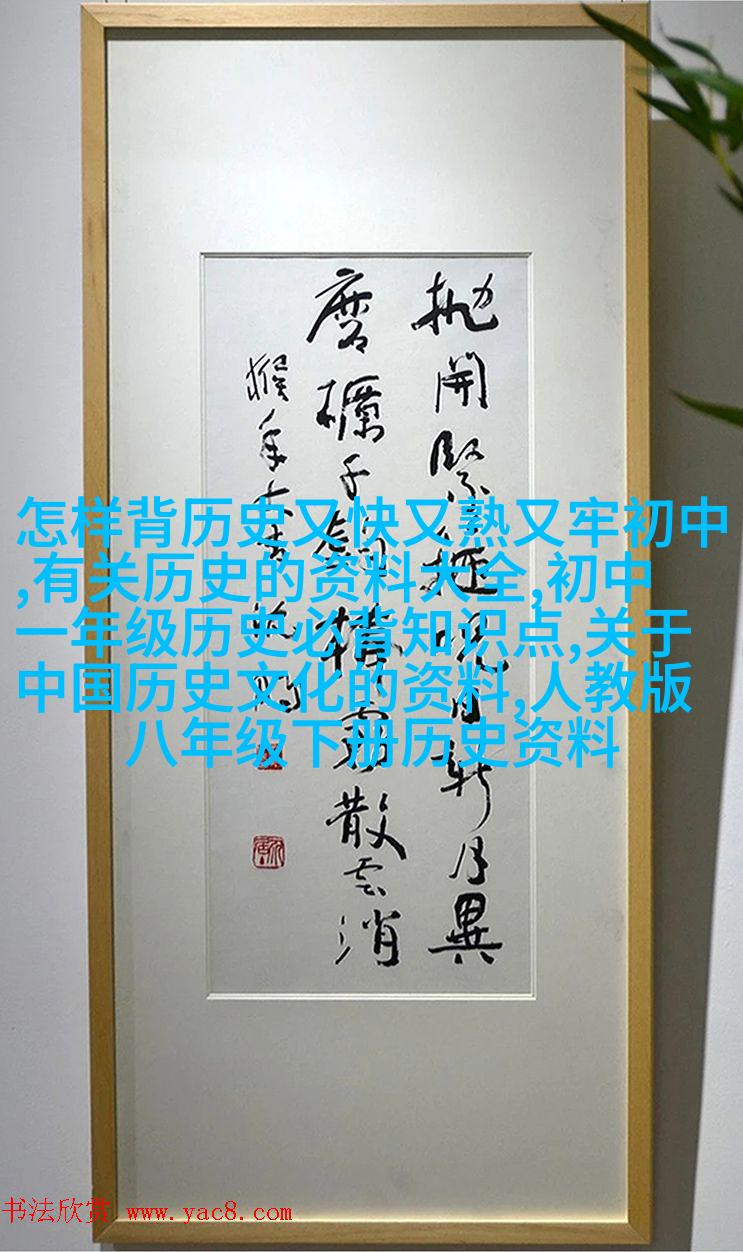 怎样背历史又快又熟又牢初中
,有关历史的资料大全,初中
一年级历史必背知识点,关于
中国历史文化的资料,人教版
八年级下册历史资料
抛開緊日新月異
千散雲消
猴年大吉
书法欣赏 www.yac8.com